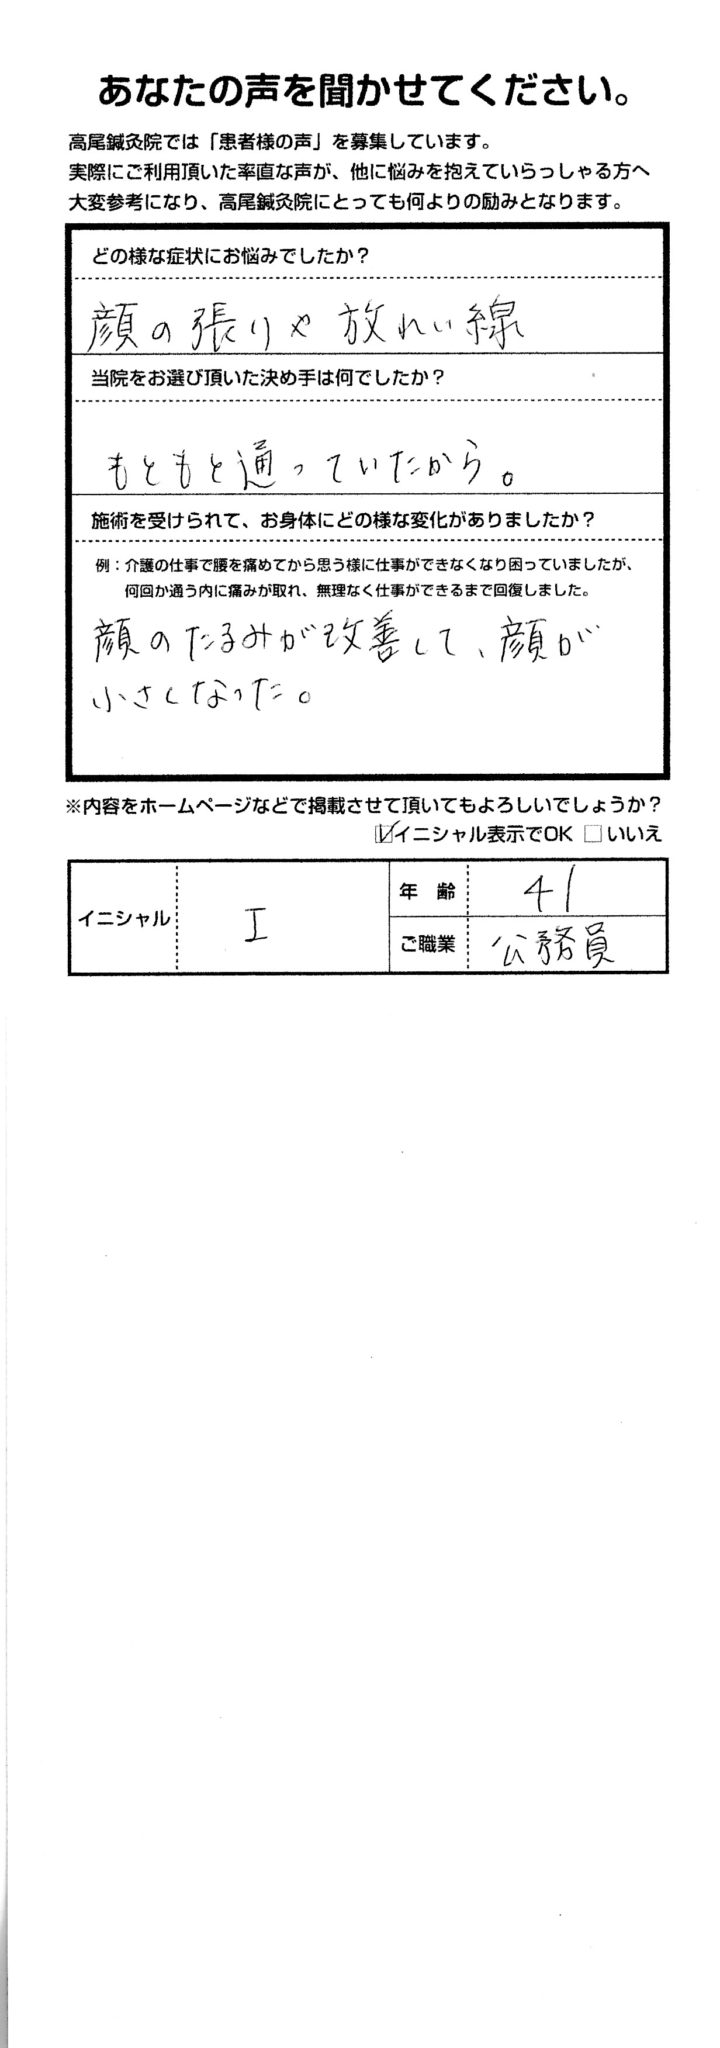 あなたの声を聞かせてください。
高尾鍼灸院では「患者様の声」を募集しています。
実際にご利用頂いた率直な声が、他に悩みを抱えていらっしゃる方へ
大変参考になり、高尾鍼灸院にとっても何よりの励みとなります。
どの様な症状にお悩みでしたか？
顔の張りや放れい線
当院をお選び頂いた決め手は何でしたか？
もともと通っていたから。
施術を受けられて、お身体にどの様な変化がありましたか？
例：介護の仕事で腰を痛めてから思う様に仕事ができなくなり困っていましたが、
何回か通う内に痛みが取れ、無理なく仕事ができるまで回復しました。
顔のたるみが改善して、顔が
小さくなった。
※内容をホームページなどで掲載させて頂いてもよろしいでしょうか？
☑イニシャル表示でOK □いいえ
イニシャル I
年 齢 41
ご職業 公務員